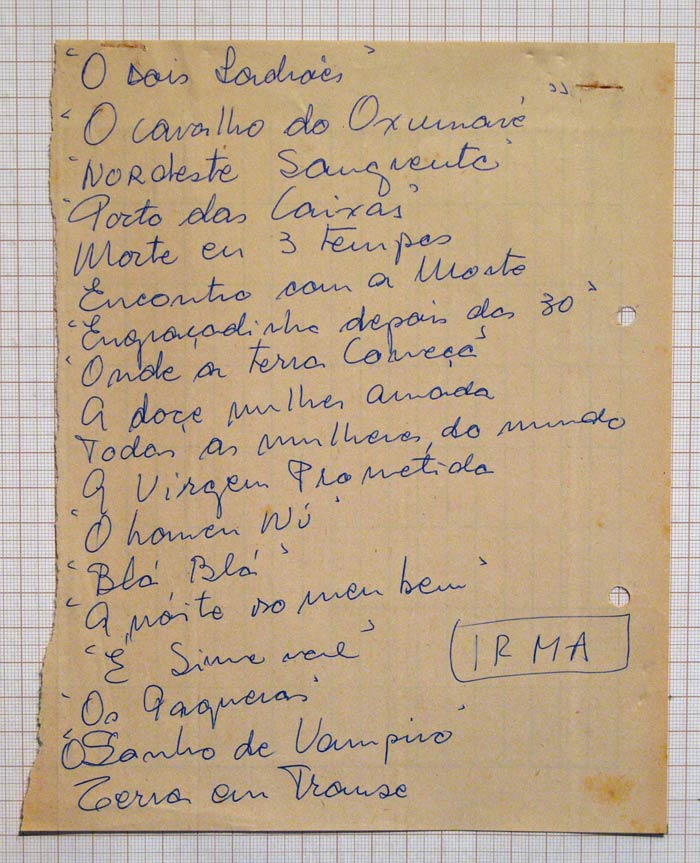 "O Dois Ladrões"
"O cavalho do Oxumaré"
"Nordeste Sangrento"
"Porto das Caixas"
Morte em 3 tempos
Encontro com a Morte
"Engraçadinha depois dos 30"
"Onde a terra Começa"
A doce mulher amada
Todas as mulheres do mundo
A Virgem Prometida
"O homem Nú"
"Blá Blá"
"A nóite do meu bem"
"É Simonal"
"Os Paqueras"
O Sanho de Vampiro"
Terra em Transe
IRMA